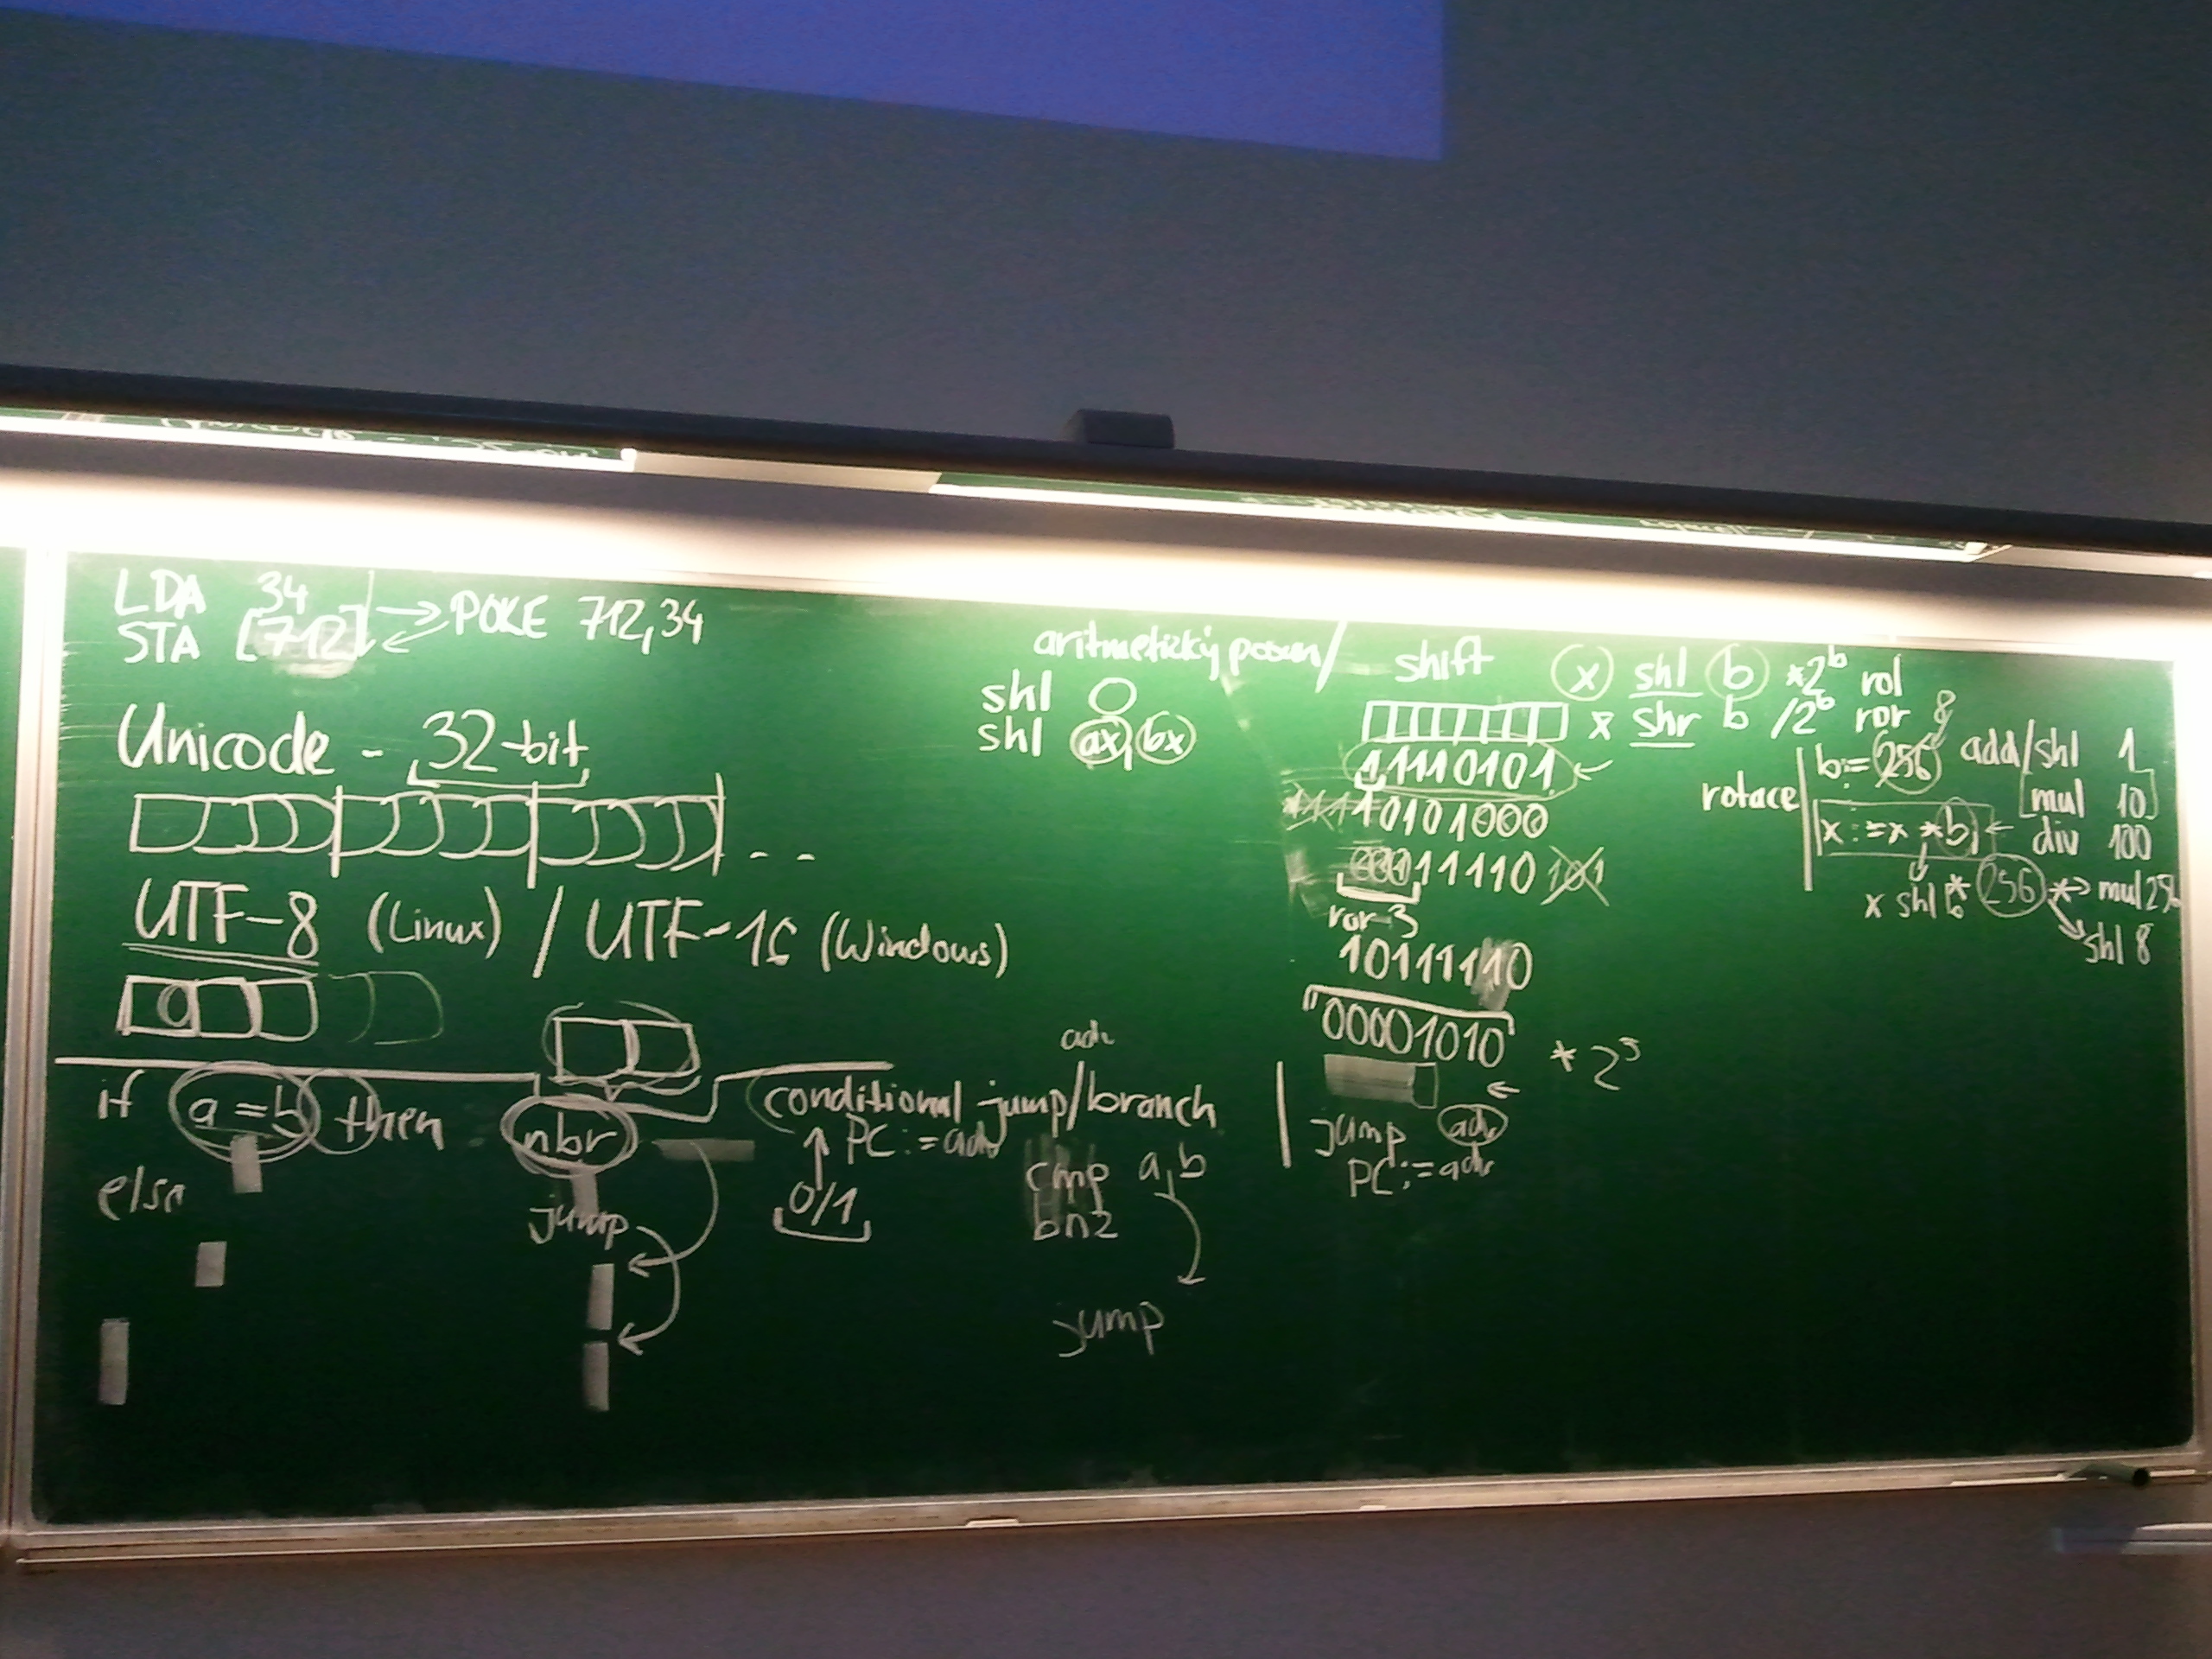 LDA 34
STA [712]
POKE 712,34
Unicode - 32-bit
UTF-8 (Linux) / UTF-16 (Windows)
if a=b then
else
nbr
jump
conditional jump/branch
PC:=adr
0/1
adr
cmp a,b
bnz
jump
aritmetický posun/ shift
shl
shl ax, bx
x shl b *2^b rol
x shr b /2^b ror
11110101
11110101000
00011110101
ror 3
10111110
00001010
*2^3
jump adr
PC:=adr
rotace
8
b:=256
x:=x*b;
x shl 8
256
add/shl 1
mul 10
div 100
* → mul 256
shl 8